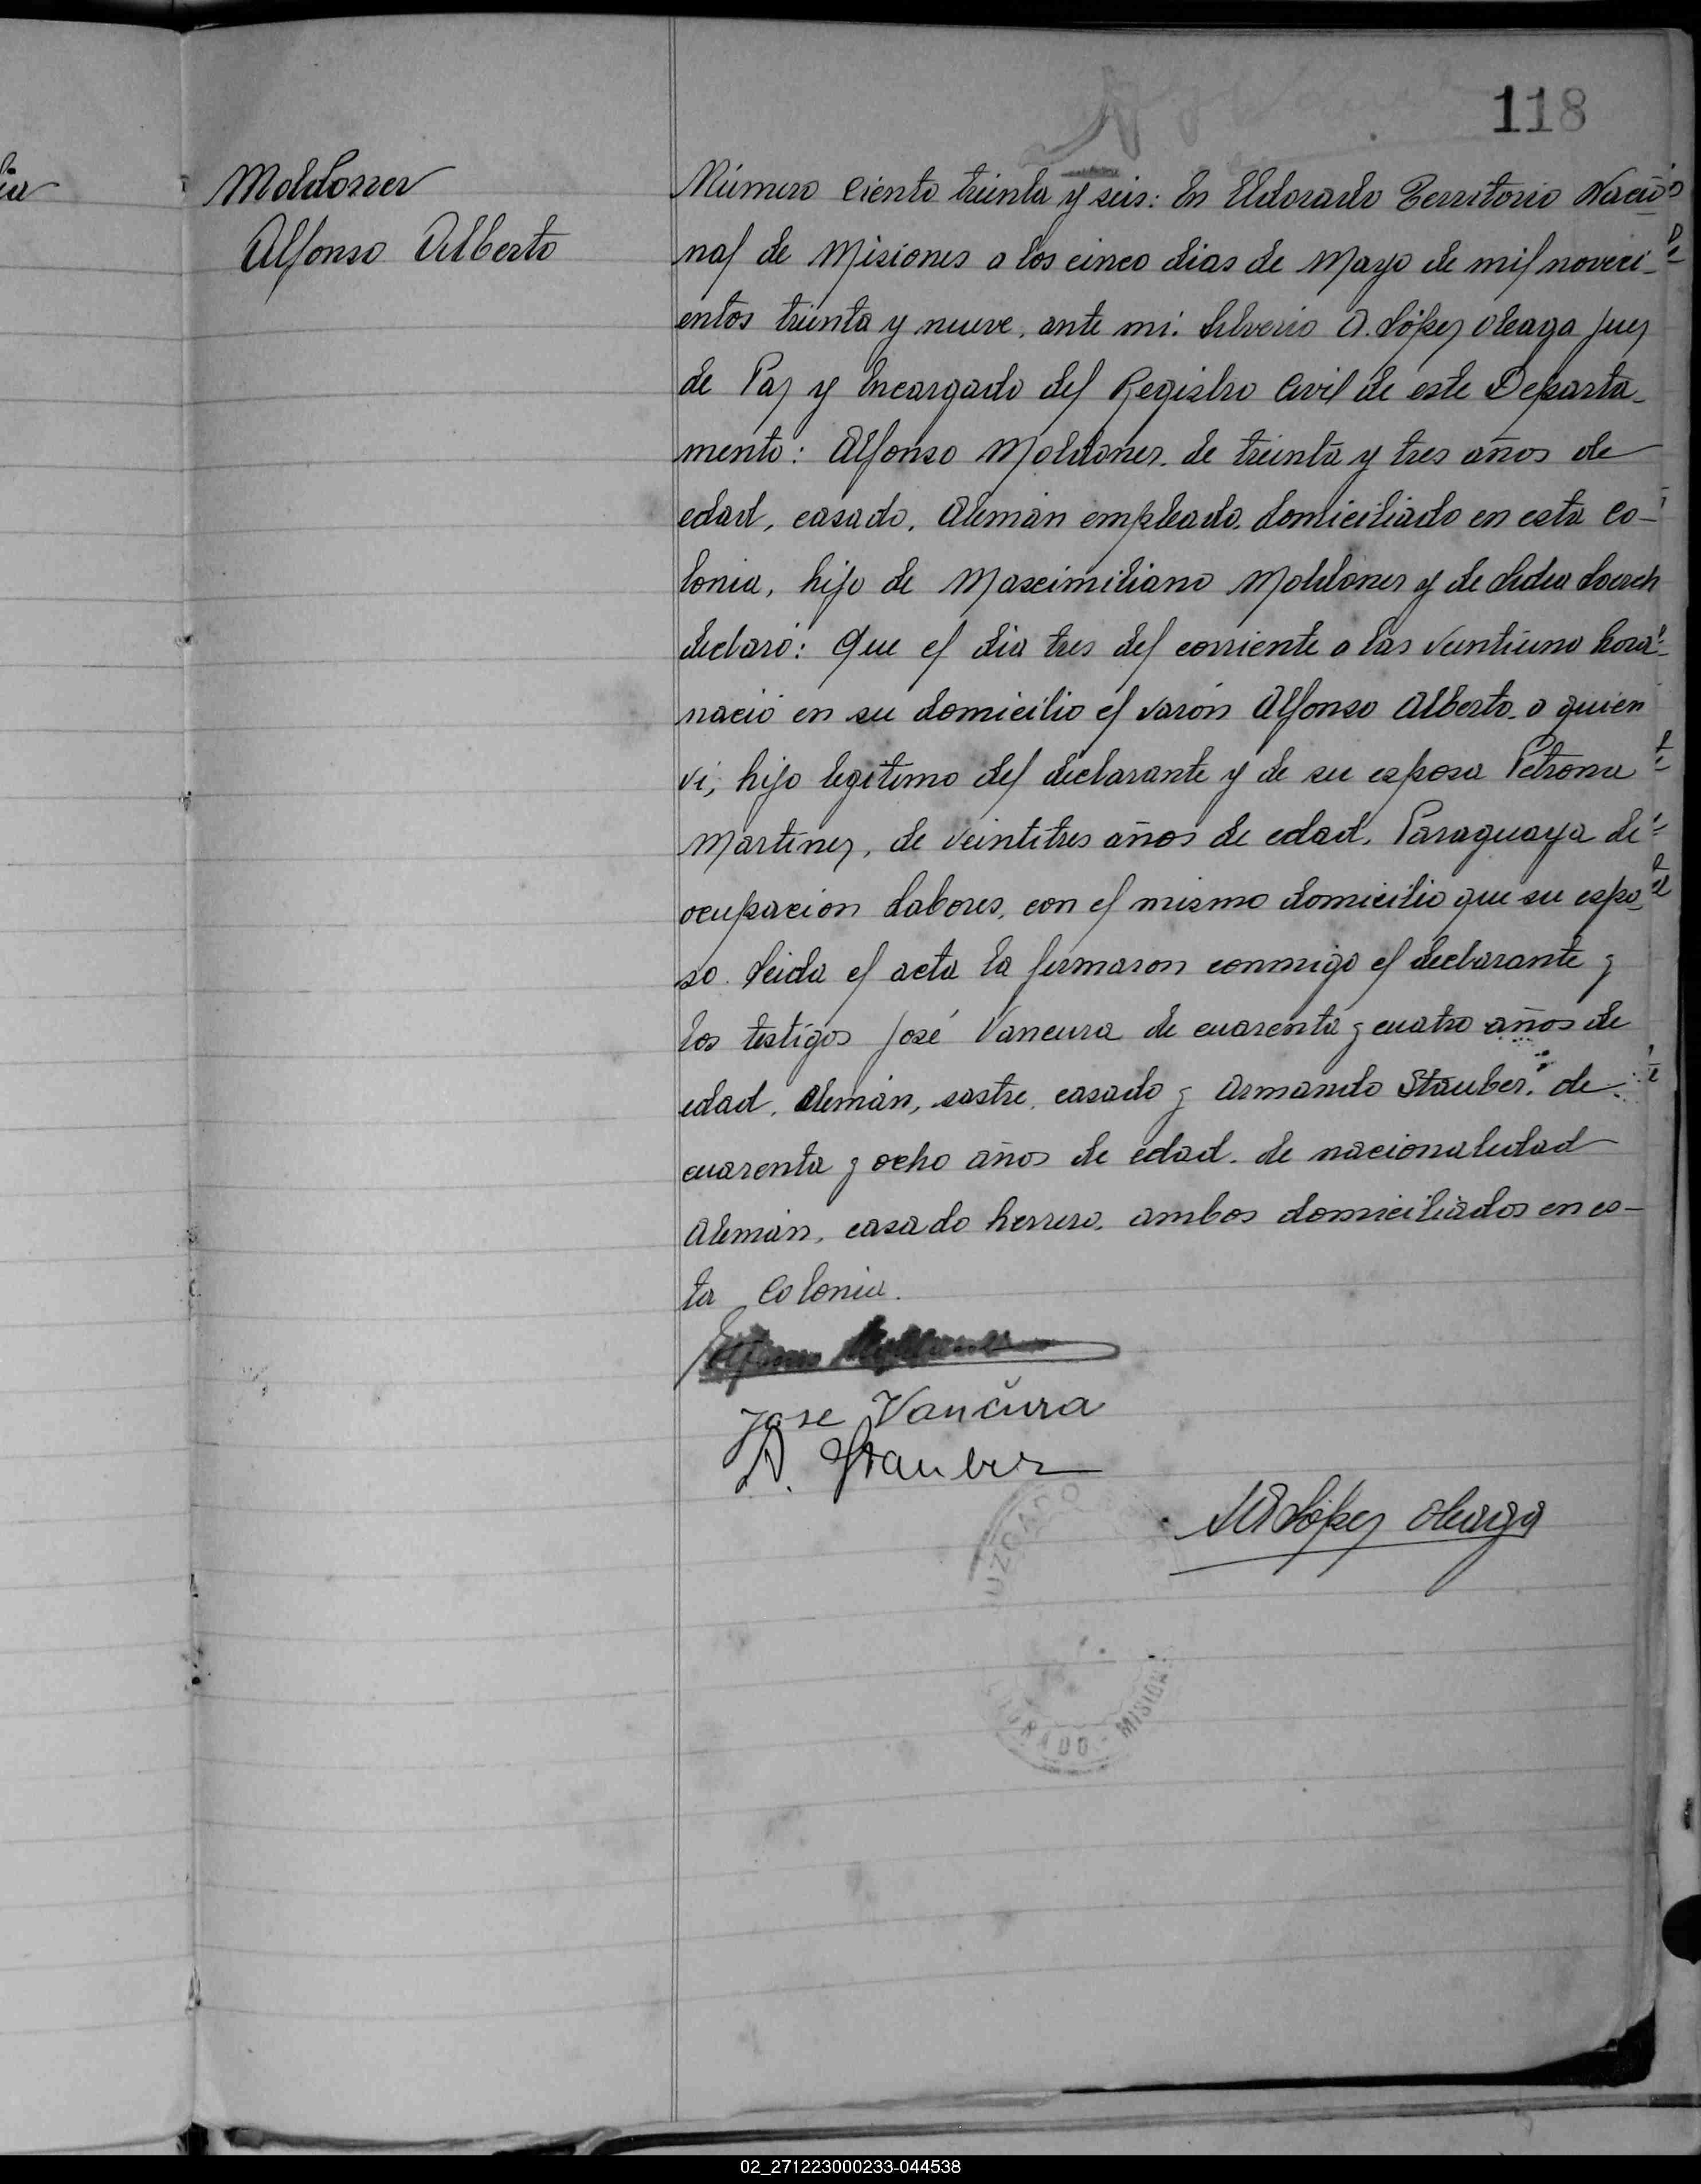 118
Moldoner
Alfonso Alberto
Número Ciento treinta y seis: En Eldorado Territorio Nacio
nal de Misiones a los cinco dias de Mayo de mil noveci-
entos treinta y nueve, ante mi: Silverio A. López Oleaga Juez
de Paz y Encargado del Registro Civil de este Departa-
mento: Alfonso Moldoner, de treinta y tres años de
edad, casado, Alemán empleado, domiciliado en esta Co-
lonia, hijo de Maximiliano Moldoner y de
declaró: Que el dia tres del corriente a las veintiuna horas
nació en su domicilio el varón Alfonso Alberto, a quien
ví, hijo legítimo del declarante y de su esposa Petrona
Martínez, de veintitres años de edad, Paraguaya de
ocupación Labores, con el mismo domicilio que su espo-
so. Leida el acta la firmaron conmigo el declarante y
los testigos José Vancura de cuarenta y cuatro años de
edad, Alemán, sastre, casado y Armando Stauber, de
cuarenta y ocho años de edad, de nacionalidad
Alemán, casado herrero, ambos domiciliados en es-
ta Colonia.
Alfonso
Jose Vančura
A. Stauber
SA López Oleaga
UZGADO
ORADO - MISION
02_271223000233-044538